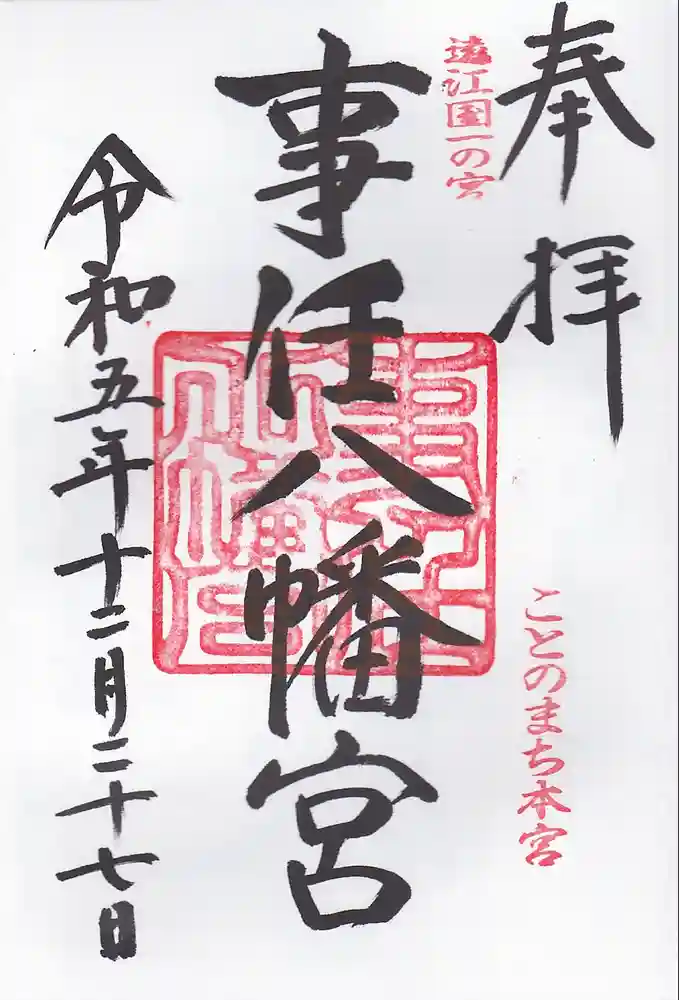 奉拝
遠江国一の宮
ことのまち本宮
事任八幡宮
令和五年十二月二十七日